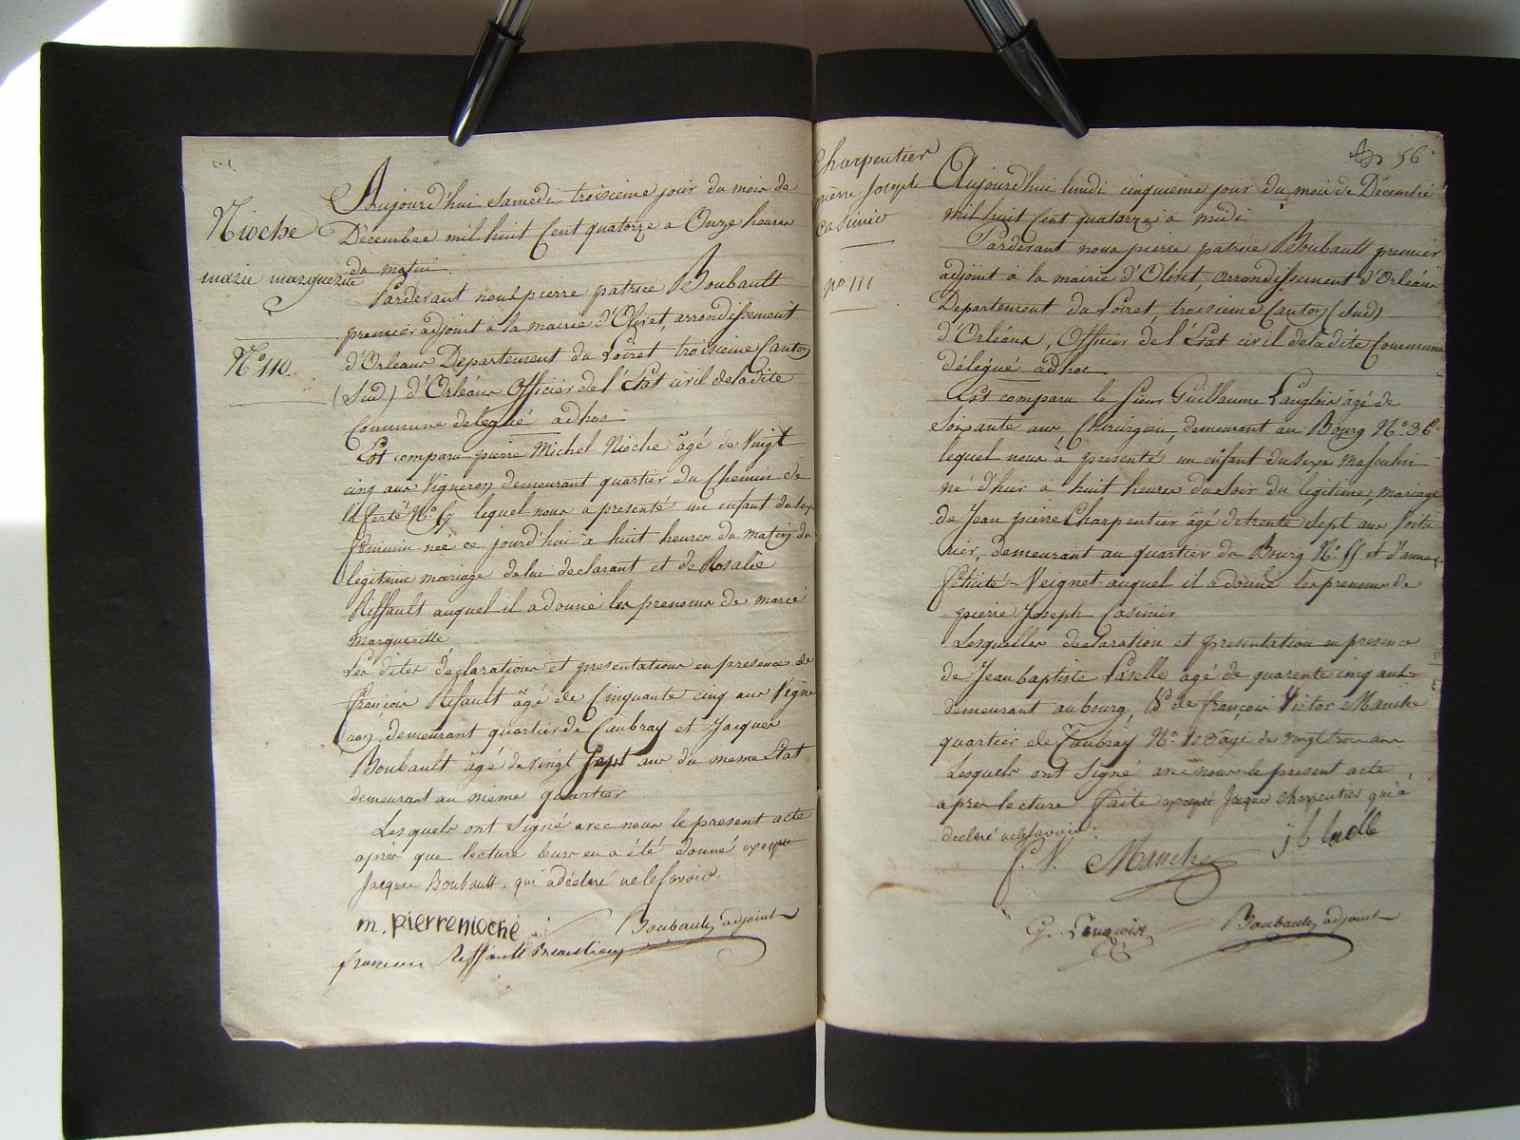 Nioche
marie marguerite
N.° 110.
Aujourd'hui samedi troisieme jour du mois de
Decembre mil huit Cent quatorze a Onze heures
du matin.
Pardevant nous pierre patrice Boubault
premier adjoint à la mairie d'Olivet, arrondissement
d'Orleans Departement du Loiret troisieme Canton
(Sud) d'Orléans Officier de l'Etat civil de ladite
Commune delegué adhoc
Est comparu pierre Michel Nioche âgé de Vingt
cinq ans Vigneron demeurant quartier du Chemin de
la ferté N.° lequel nous a presenté un enfant du sexe
feminin née ce jourd'hui à huit heures du matin du
legitime mariage de lui declarant et de Rosalie
Riffault auquel il a donné les prenoms de marie
margueritte
Les dites declarations et presentations en presence de
françois Rifault âgé de Cinquante cinq ans Vigne
ron, demeurant quartier de Caubray et Jacques
Boubault âgé de vingt sept ans du meme Etat
demeurant au même quartier
Lesquels ont signé avec nous le present acte
après que lecture leur en a été donné excepté
Jacques Boubault, qui a déclaré ne le savoir.
m. pierre nioché
Boubault, adjoint
francois Riffault
Charpentier
pierre Joseph
Casimir
N° 111
56
Aujourd'hui lundi cinquieme jour du mois de Décembre
mil huit Cent quatorze à midi
Pardevant nous pierre patrice Boubault premier
adjoint à la mairie d'Olivet, arrondissement d'Orléans
Departement du Loiret, troisieme Canton (Sud)
d'Orléans, Officier de l'Etat civil de ladite Commune
délégué adhoc
Est comparu le sieur Guillaume Langlois âgé de
Soixante ans Chirurgien, demeurant au Bourg N.° 36
lequel nous à presenté un enfant du sexe masculin
né d'hier à huit heures du soir du legitime mariage
de Jean pierre Charpentier âgé de trente sept ans Voitu
rier, demeurant au quartier du Bourg N.° 55 et d'anne
félicité Veignet auquel il a donné les prenoms de
pierre Joseph Casimir
Lesquelles declaration et presentation en presence
de Jean baptiste Laselle âgé de quarente cinq ans
demeurant au bourg, & de françois Victor Manche
quartier de Caubray N.° agé de vingt trois ans
Lesquels ont signé avec nous le present acte
apres lecture faite excepté Jacques Charpentier qui a
declaré ne le savoir.
f. V. Manche
G. Langlois
Boubault, adjoint